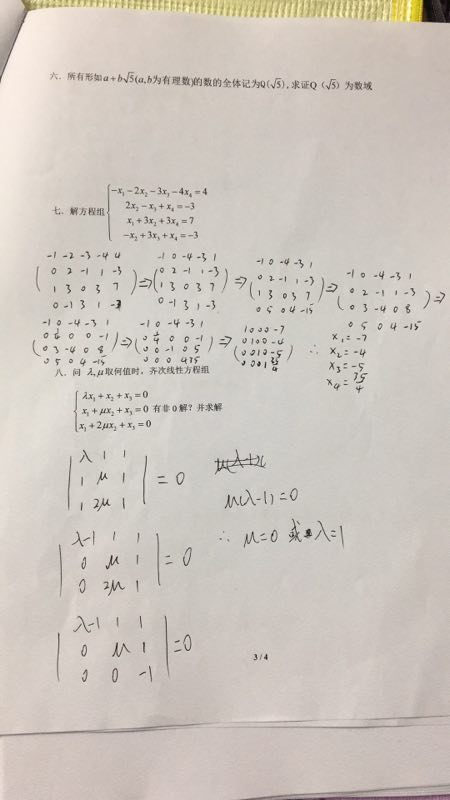 六、所有形如a+b√5(a,b为有理数)的数的全体记为Q(√5),求证Q(√5)为数域
七、解方程组
-x₁-2x₂-3x₃-4x₄=4
2x₂-x₃+x₄=-3
x₁+3x₂+3x₄=7
-x₂+3x₃+x₄=-3
-1 -2 -3 -4 4
0 2 -1 1 -3
1 3 0 3 7
0 -1 3 1 -3
⇒
-1 0 -4 -3 1
0 2 -1 1 -3
1 3 0 3 7
0 -1 3 1 -3
⇒
-1 0 -4 -3 1
0 2 -1 1 -3
1 3 0 3 7
0 5 0 4 -15
⇒
-1 0 -4 -3 1
0 2 -1 1 -3
0 3 -4 0 8
0 5 0 4 -15
⇒
-1 0 -4 -3 1
0 0 0 -1
0 3 -4 0 8
0 5 0 4 -15
⇒
-1 0 -4 -3 1
0 0 0 -1
0 0 -1 0 5
0 0 0 4 35
⇒
1 0 0 0 -7
0 1 0 0 -4
0 0 1 0 -5
0 0 0 1 35/4
∴ x₁=-7
x₂=-4
x₃=-5
x₄=35/4
八、问 λ,μ取何值时,齐次线性方程组
λx₁+x₂+x₃=0
x₁+μx₂+x₃=0 有非0解?并求解
x₁+2μx₂+x₃=0
|λ 1 1|
|1 μ 1| =0
|1 2μ 1|
μ(λ-1)=0
∴ μ=0 或 λ=1
|λ-1 1 1|
|0 μ 1| =0
|0 2μ 1|
|λ-1 1 1|
|0 μ 1| =0
|0 0 -1|
3 / 4